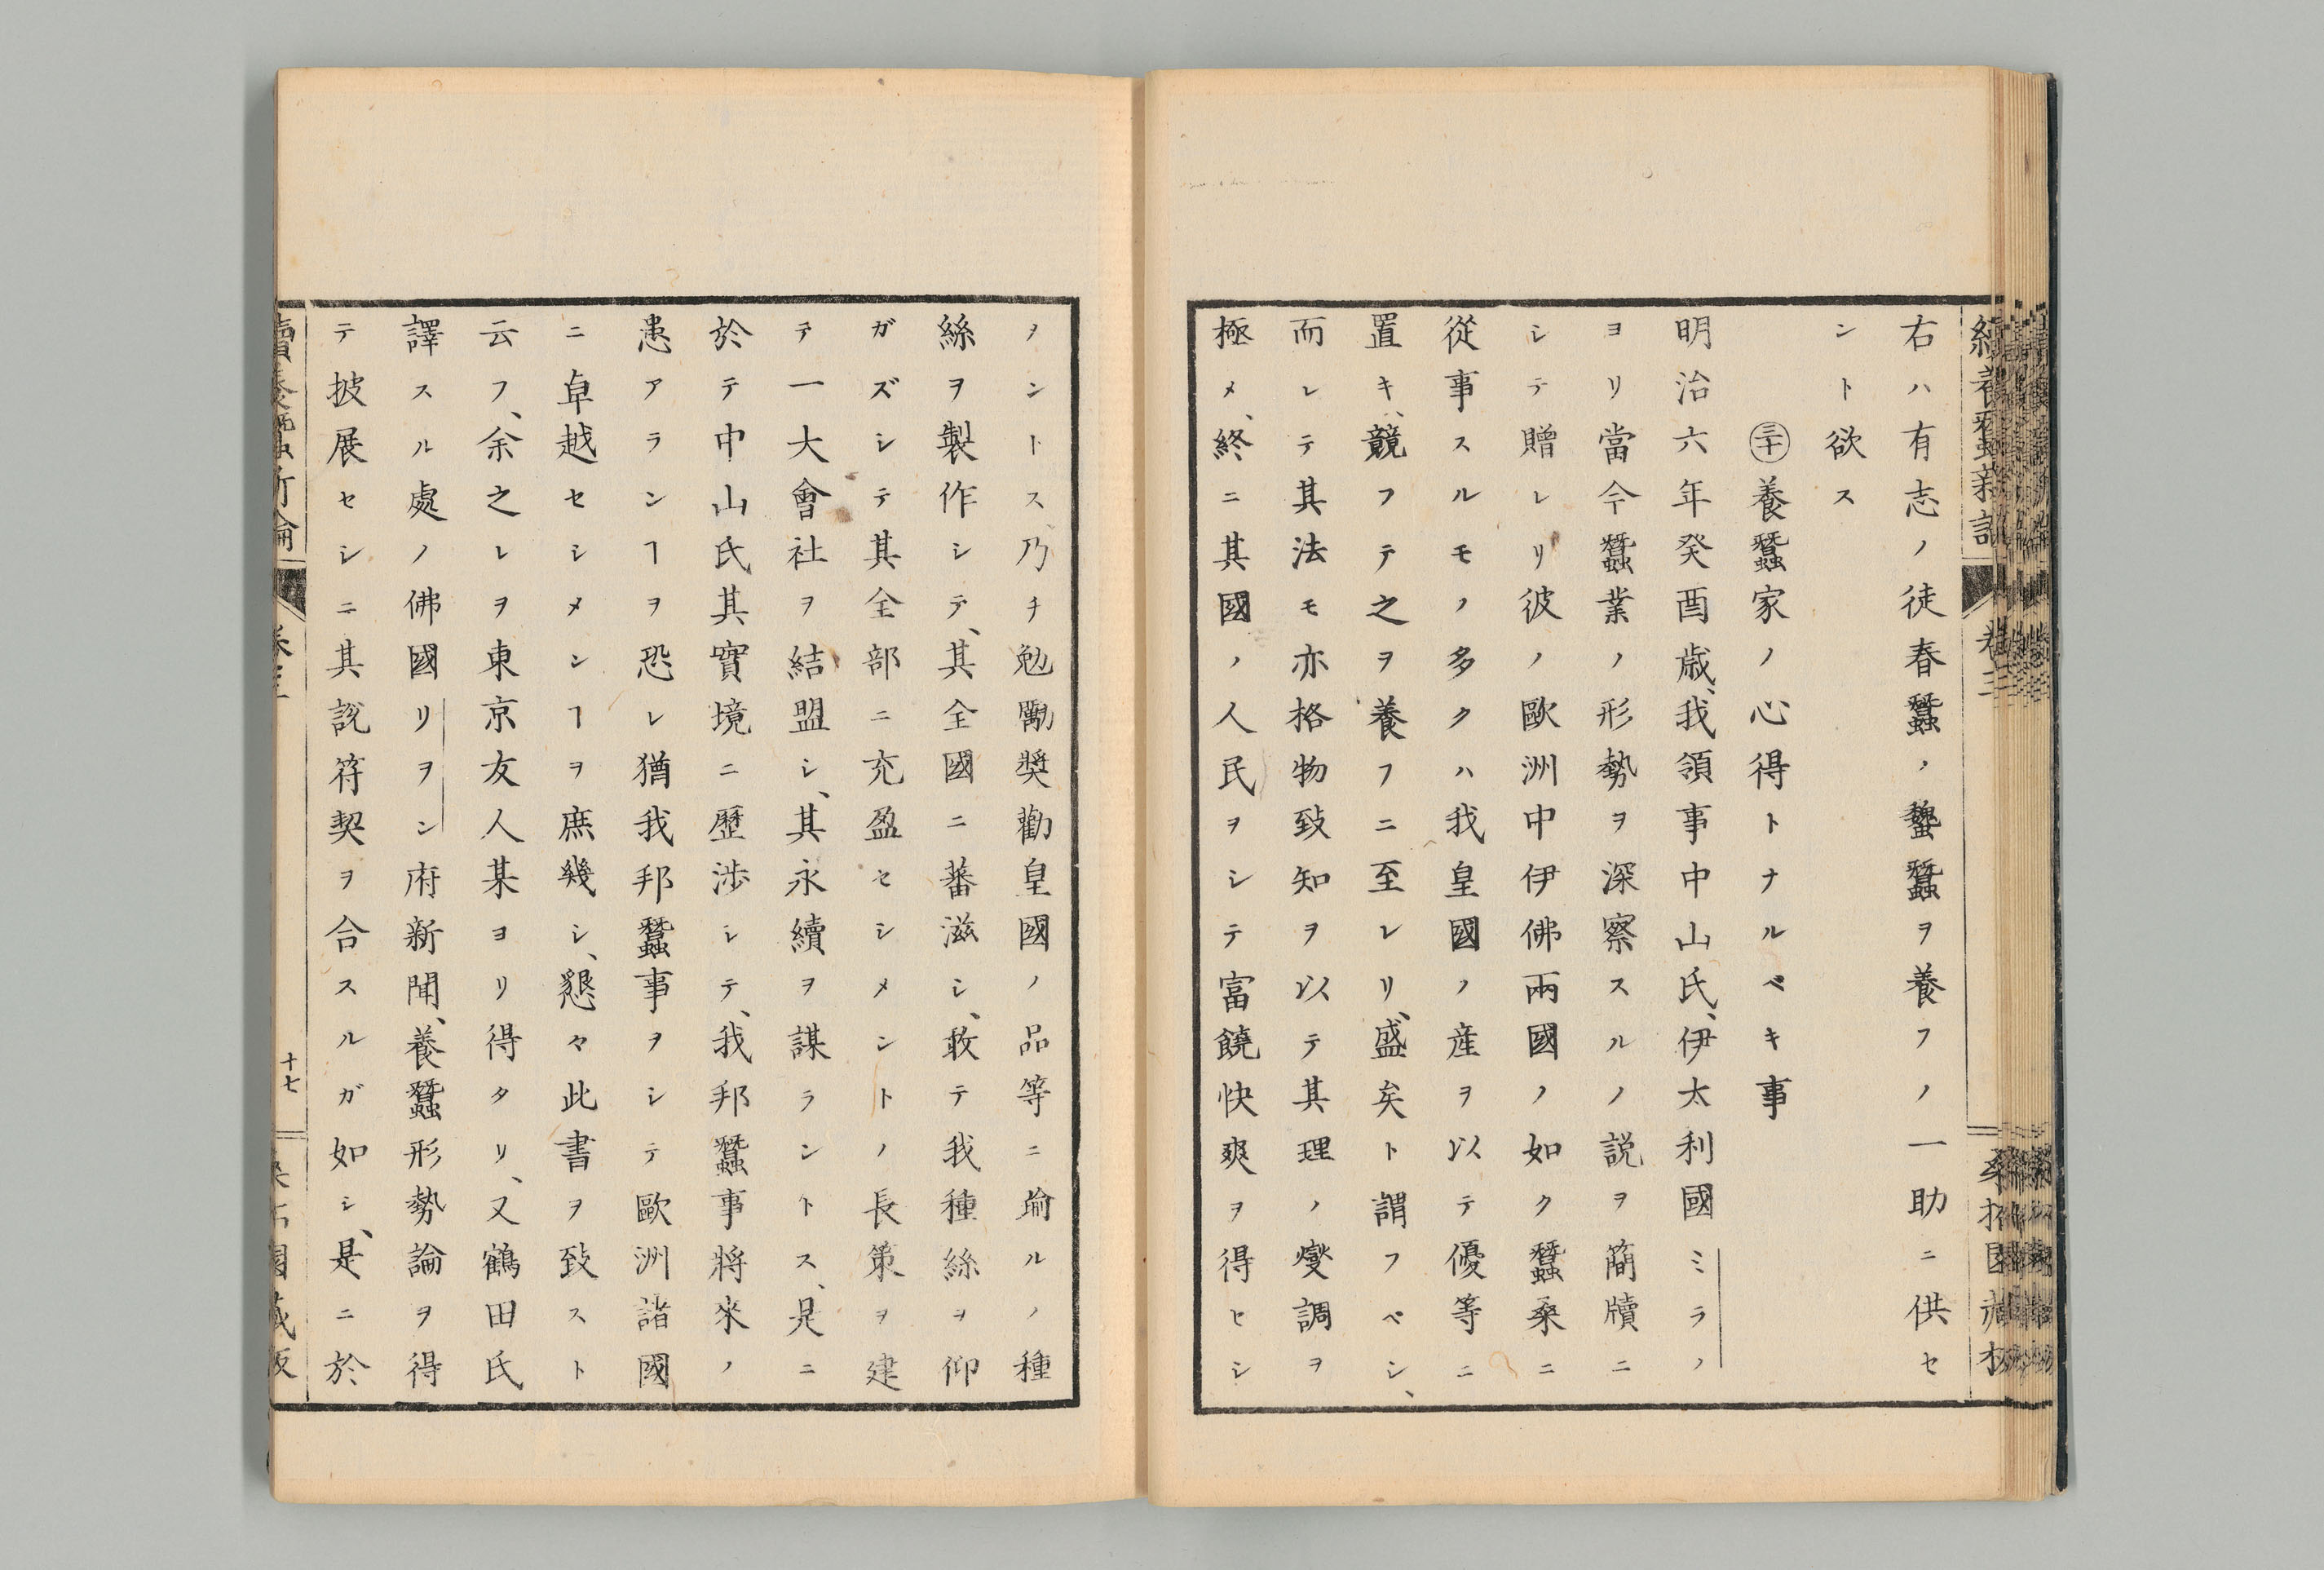 右ハ有志ノ徒春蠶ノ蠺蠶ヲ養フノ一助ニ供セ
ント欲ス
三十 養蠶家ノ心得トナルベキ事
明治六年癸酉歳、我領事中山氏、伊太利國ミラノ
ヨリ當今蠶業ノ形勢ヲ深察スルノ説ヲ簡牘ニ
シテ贈レリ彼ノ歐洲中伊佛兩國ノ如ク蠶桑ニ
從事スルモノ多クハ我皇國ノ産ヲ以テ優等ニ
置キ、競フテ之ヲ養フニ至レリ、盛矣ト謂フベシ、
而レテ其法モ亦格物致知ヲ以テ其理ノ燮調ヲ
極メ、終ニ其國ノ人民ヲシテ富饒快爽ヲ得ヒシ
ノントス、乃チ勉勵奬勸皇國ノ品等ニ踰ルノ種
絲ヲ製作シテ、其全國ニ蕃滋シ、敢テ我種絲ヲ仰
ガズシテ其全部ニ充盈セシメントノ長策ヲ建
テ一大會社ヲ結盟シ、其永續ヲ謀ラントス、是ニ
於テ中山氏其實境ニ歷渉シテ、我邦蠶事將來ノ
患アランヿヲ恐レ猶我邦蠶事ヲシテ歐洲諸國
ニ卓越セシメンヿヲ庶幾シ、懇々此書ヲ致スト
云フ、余之レヲ東京友人某ヨリ得タリ、又鶴田氏
譯スル處ノ佛國リヲン府新聞、養蠶形勢論ヲ得
テ披展セシニ其説符契ヲ合スルガ如シ、是ニ於
卷三
十七